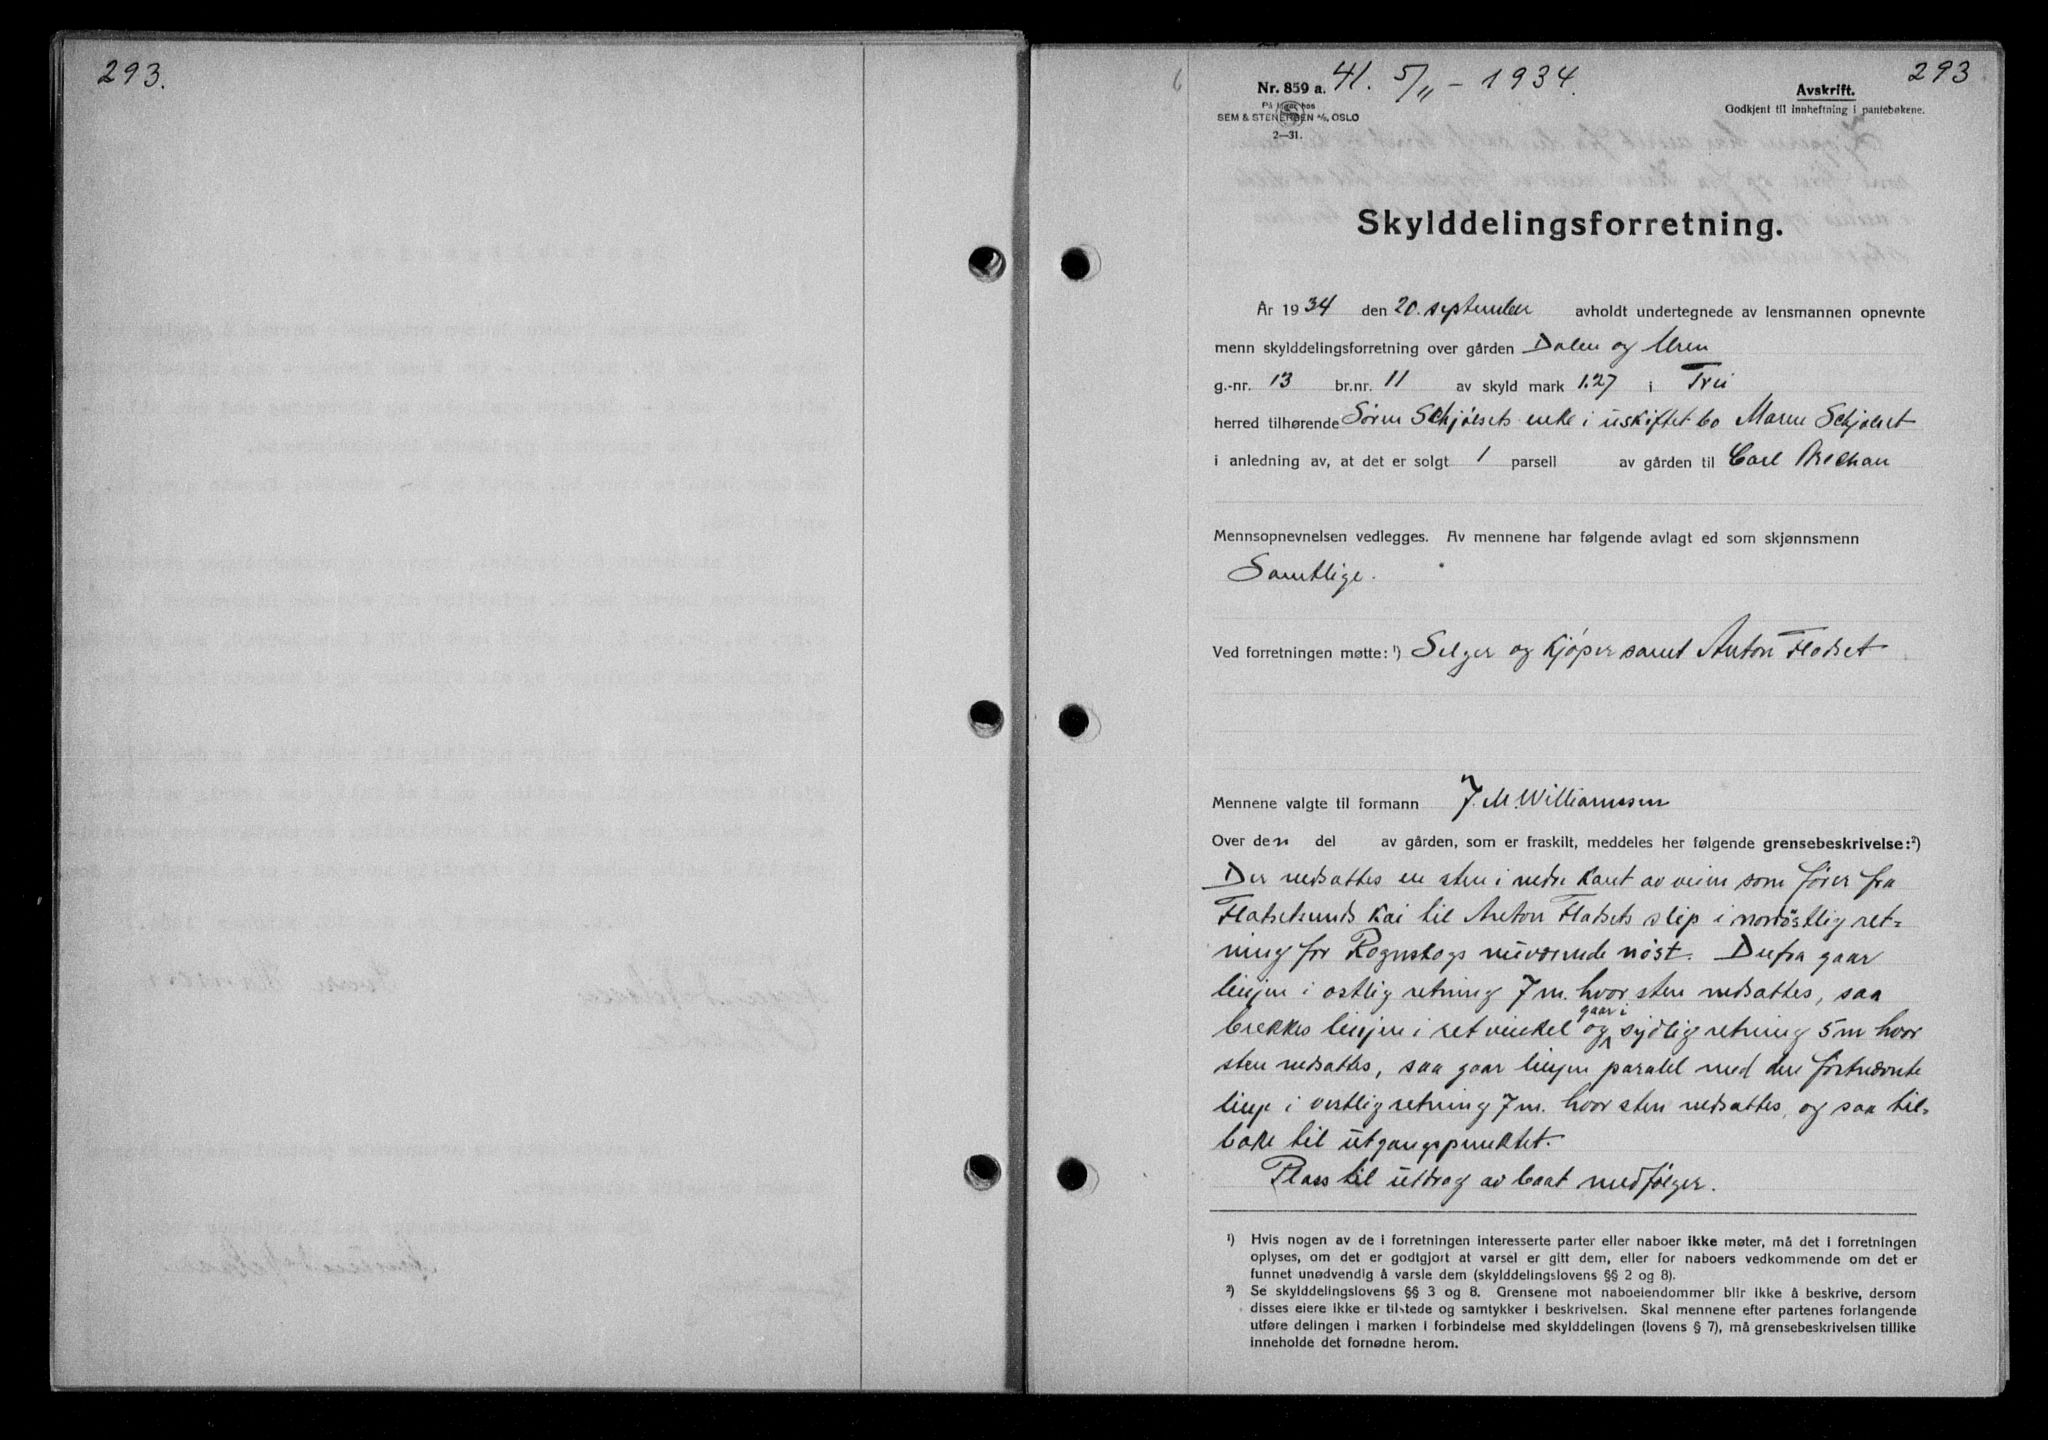 293.
293
Nr. 859 a. 41. 5/11 - 1934.
På lager hos
SEM & STENERSEN A/S, OSLO
2—31.
Avskrift.
Godkjent til innheftning i pantebøkene.
Skylddelingsforretning.
År 1934 den 20. september avholdt undertegnede av lensmannen opnevnte
menn skylddelingsforretning over gården Dalen og Uren
g.-nr. 13 br.nr. 11 av skyld mark 1.27 i
herred tilhørende Sören Schjølsets enke i uskiftet bo Maren Schjølset
i anledning av, at det er solgt 1 parsell av gården til Carl
Mennsopnevnelsen vedlegges. Av mennene har følgende avlagt ed som skjønnsmenn
Samtlige.
Ved forretningen møtte: ¹) Selger og kjøper samt Anton Flatset
Mennene valgte til formann J. M. Williamssen
Over den del av gården, som er fraskilt, meddeles her følgende grensebeskrivelse:²)
Der nedsattes en sten i nedre kant av veien som fører fra
Flatsetsunds kai til Anton Flatsets slip i nordöstlig ret-
ning for Rognskogs nuværende nöst. Derfra gaar
linjen i ostlig retning 7 m. hvor sten nedsattes, saa
brekkes linjen i ret vinkel og gaar i sydlig retning 5 m hvor
sten nedsattes, saa gaar linjen paralel med den førstnævnte
linje i vestlig retning 7 m. hvor sten nedsattes, og saa til-
bake til utgangspunktet.
Plass til utdrag av baat medfølger.
¹) Hvis nogen av de i forretningen interesserte parter eller naboer ikke møter, må det i forretningen
oplyses, om det er godtgjort at varsel er gitt dem, eller for naboers vedkommende om det er
funnet unødvendig å varsle dem (skylddelingslovens §§ 2 og 8).
²) Se skylddelingslovens §§ 3 og 8. Grensene mot naboeiendommer blir ikke å beskrive, dersom
disses eiere ikke er tilstede og samtykker i beskrivelsen. Skal mennene efter partenes forlangende
utføre delingen i marken i forbindelse med skylddelingen (lovens § 7), må grensebeskrivelsen tillike
inneholde det fornødne herom.